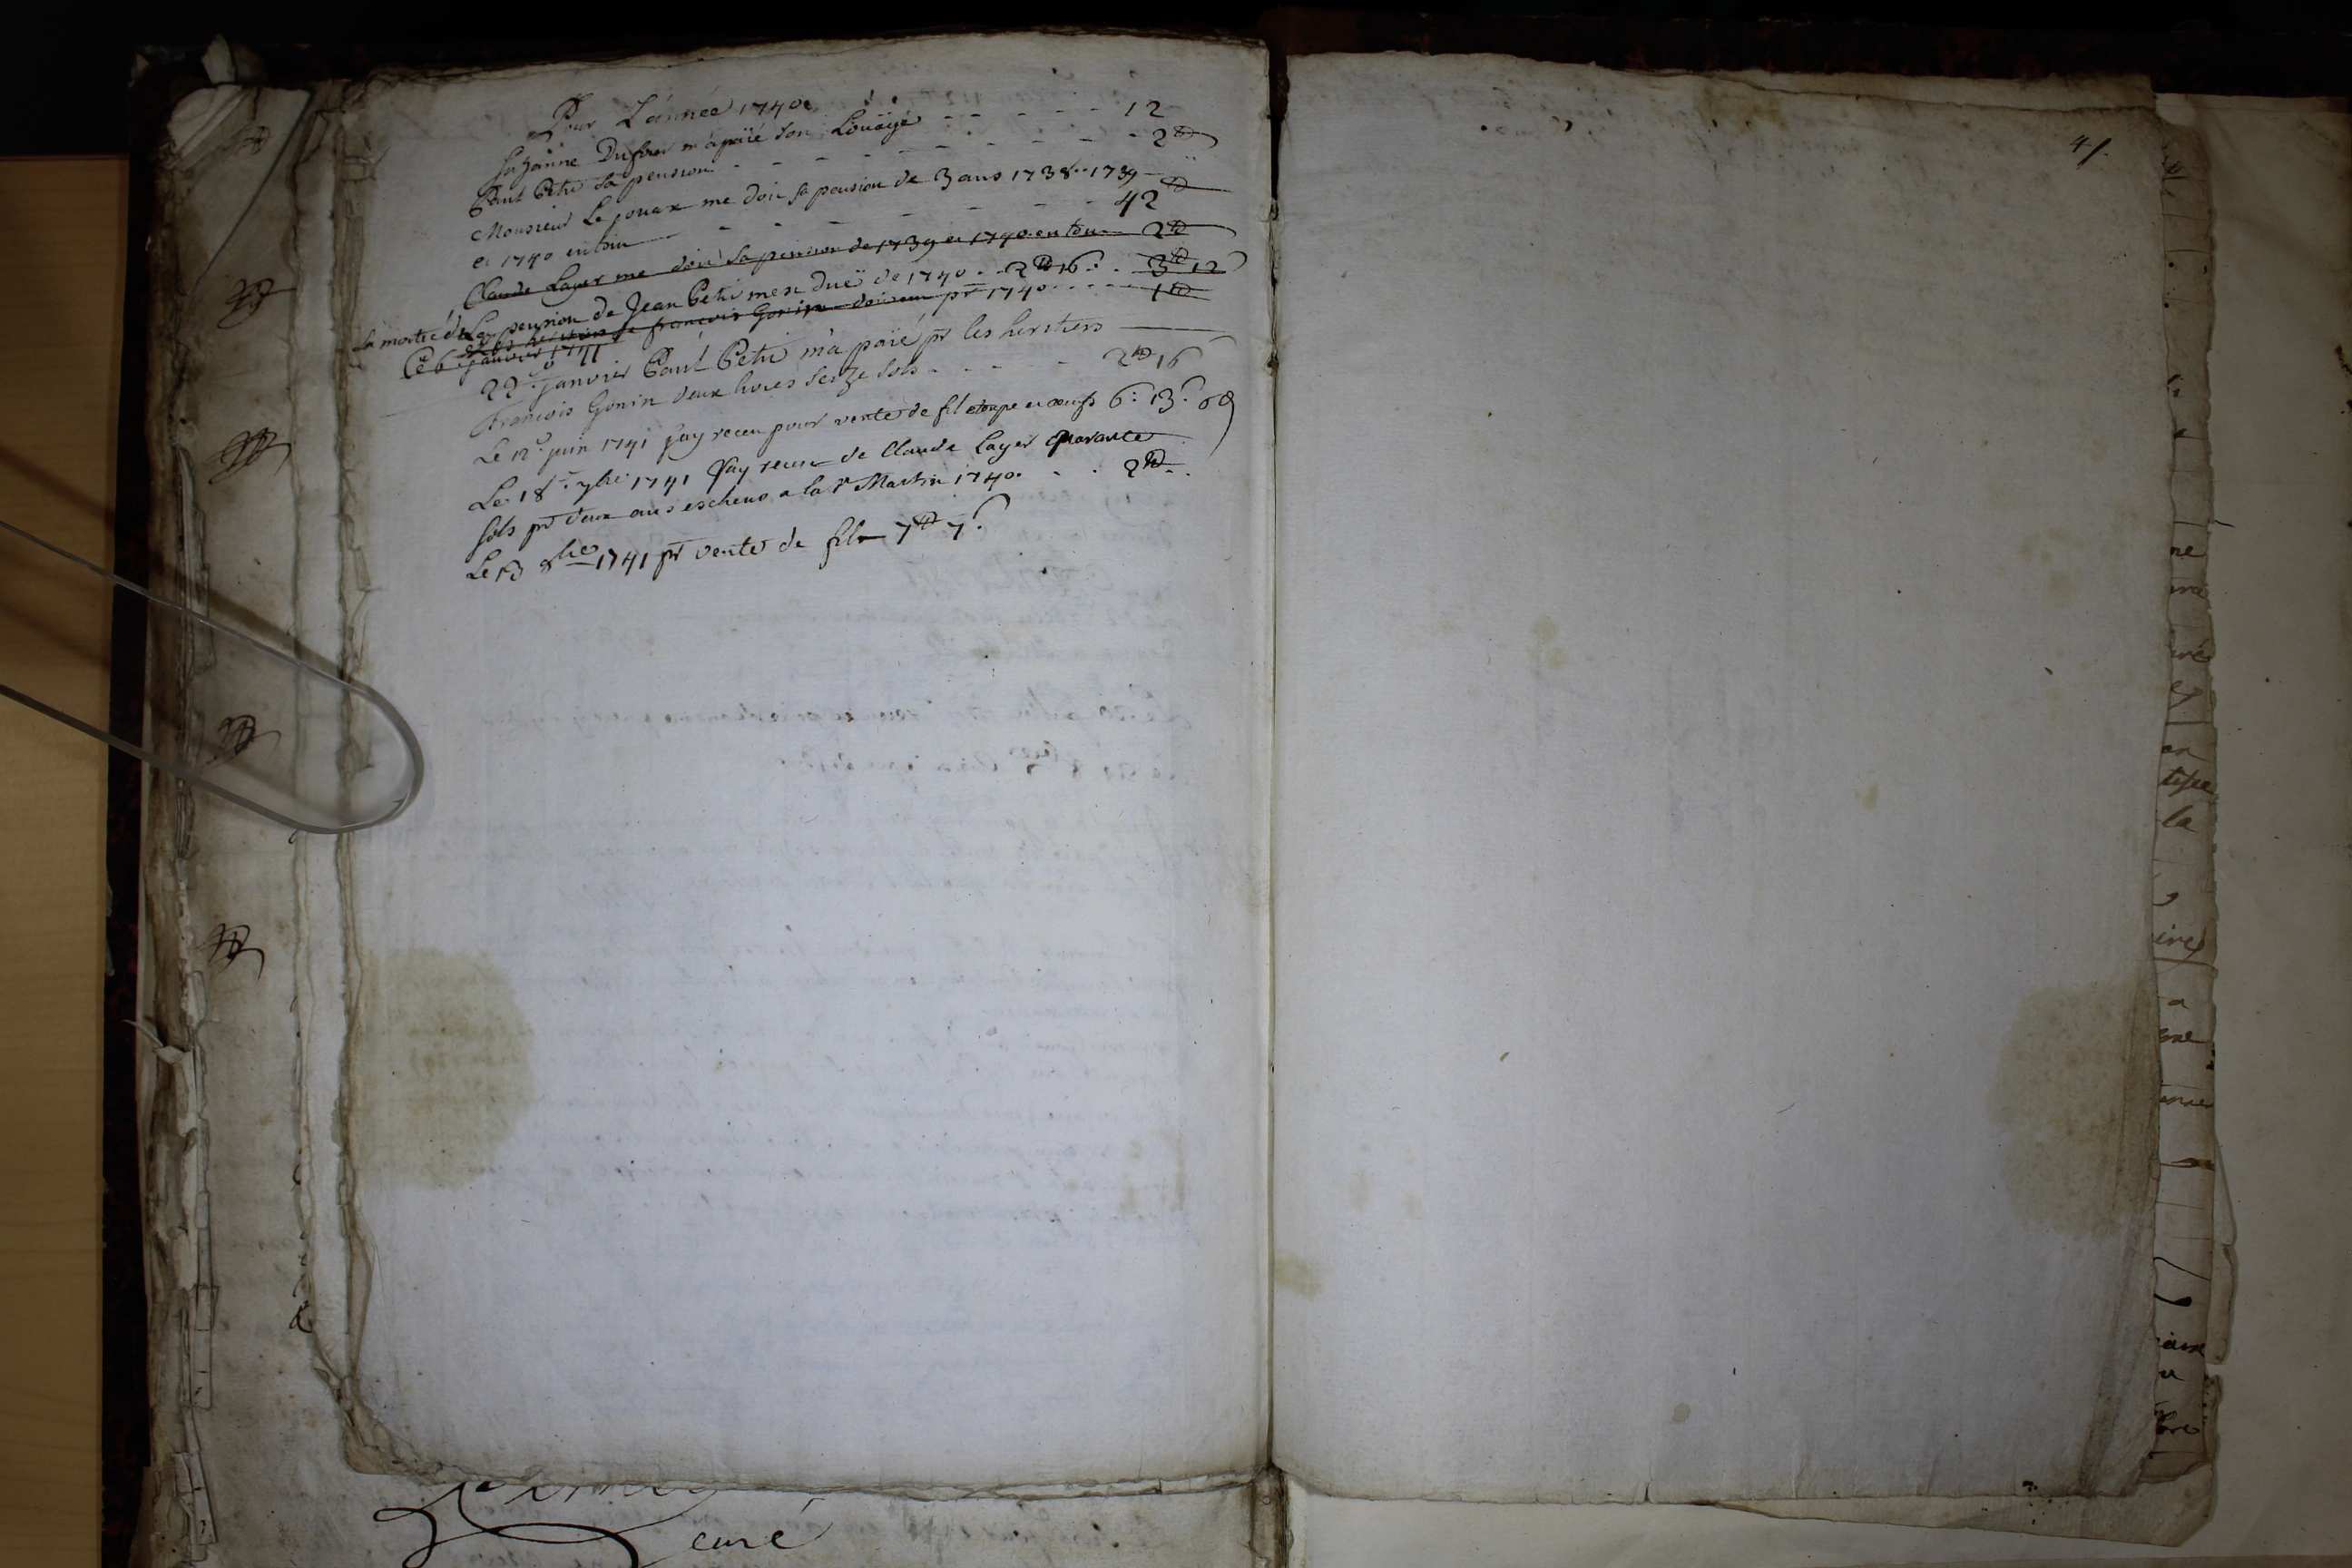 Pour L'année 1740e
Suzanne Dufour m'a païé son Loüage - - - - - 12
Paul Petit sa pension - - - - - - - - - 2lt
Monsieur Le jouax me doit sa pension de 3 ans 1738.. 1739
et 1740 en tout - - - - - - 42lt
Claude Layer me doit sa pension de 1739 et 1740 en tout 2lt
La moitié de La pension de Jean Petit m'est duë de 1740 . . 2lt 16s . . 3lt 12s
Les héritiers de françois Gonin doivent pr 1740 . . . . 1lt
Ce 6 janvier 1741
22e janvier Paul Petit m'a païé pr les heritiers
François Gonin deux livres seize sols . - - - - 2lt 16s
Le 12e juin 1741 j'ay receu pour vente de fil etoupe et oeufs 6: 13s 6d
Le 18e 7bre 1741 j'ay receu de Claude Layer quarante
sols pr deux ans escheus a la St Martin 1740 . . . 2lt
Le 13 8bre 1741 pr vente de fil 7lt 7s
41.
curé
ne
an
la
ire
a